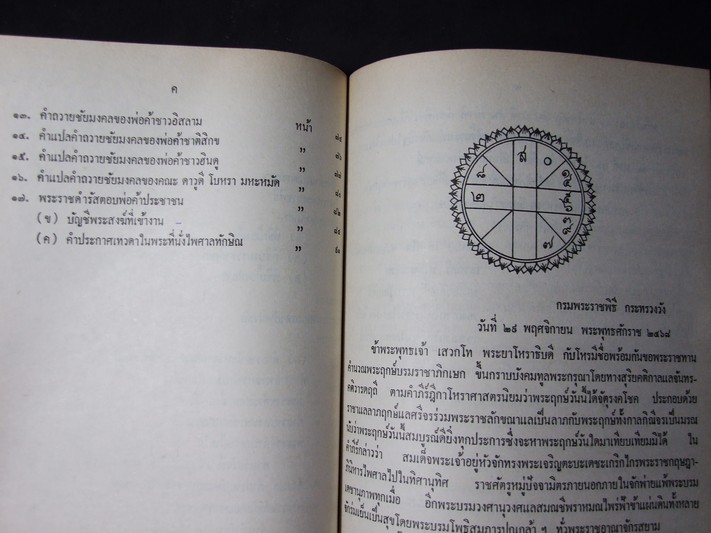 ค
หน้า
๑๓. คำถวายชัยมงคลของพ่อค้าชาวอิสลาม
๑๔. คำแปลคำถวายชัยมงคลของพ่อค้าชาติสิกข "
๑๕. คำแปลคำถวายชัยมงคลของพ่อค้าชาวฮินดู "
๑๖. คำแปลคำถวายชัยมงคลของคณะ ดาวุดี โบหรา มหะหมัด "
๑๗. พระราชดำรัสตอบพ่อค้าประชาชน "
(ข) บัญชีพระสงฆ์ที่เข้างาน "
(ค) คำประกาศเทวดาในพระที่นั่งไพศาลทักษิณ "
ส
๐
๒
๗
กรมพระราชพิธี กระทรวงวัง
วันที่ ๒๙ พฤศจิกายน พระพุทธศักราช ๒๔๖๘
ข้าพระพุทธเจ้า เสวกโท พระยาโหราธิบดี กับโหรมีชื่อพร้อมกันขอพระราชทาน
คำนวณพระฤกษ์บรมราชาภิเษก ขึ้นกราบบังคมทูลพระกรุณาโดยทางสุริยคติกาลแลจันทร-
คติวารดฤถี ตามคำภีร์ฎีกาโหราศาสตรนิยมว่าพระฤกษ์วันนี้ได้จัตุรงคโชค ประกอบด้วย
ราชาแลลาภฤกษ์แลศรีจรร่วมพระราชลักขณาแลเป็นลาภกับพระฤกษ์ทั้งกาลกิณีจรเป็นมรณ
นับว่าพระฤกษ์วันนี้สมบุรณ์ดียิ่งทุกประการซึ่งจะหาพระฤกษ์วันใดมาเทียบเทียมมิได้ ใน
คำภีร์กล่าวว่า สมเด็จพระเจ้าอยู่หัวจักทรงพระเจริญตะบะเดชะเกริกไกรพระราชกฤษฎา-
ภินิหารไพศาลไปในทิศานุทิศ ราชศัตรูหมู่ปัจจามิตรภายนอกภายในจักพ่ายแพ้พระบรม
เดชานุภาพทุกเมื่อ อีกพระบรมวงศานุวงศแลสมณชีพราหมณไพร่ฟ้าข้าแผ่นดินทั้งหลาย
จักร่มเย็นเป็นสุขโดยพระบรมโพธิสมภารปกเกล้า ๆ ทั่วพระราชอาณาจักรสยาม